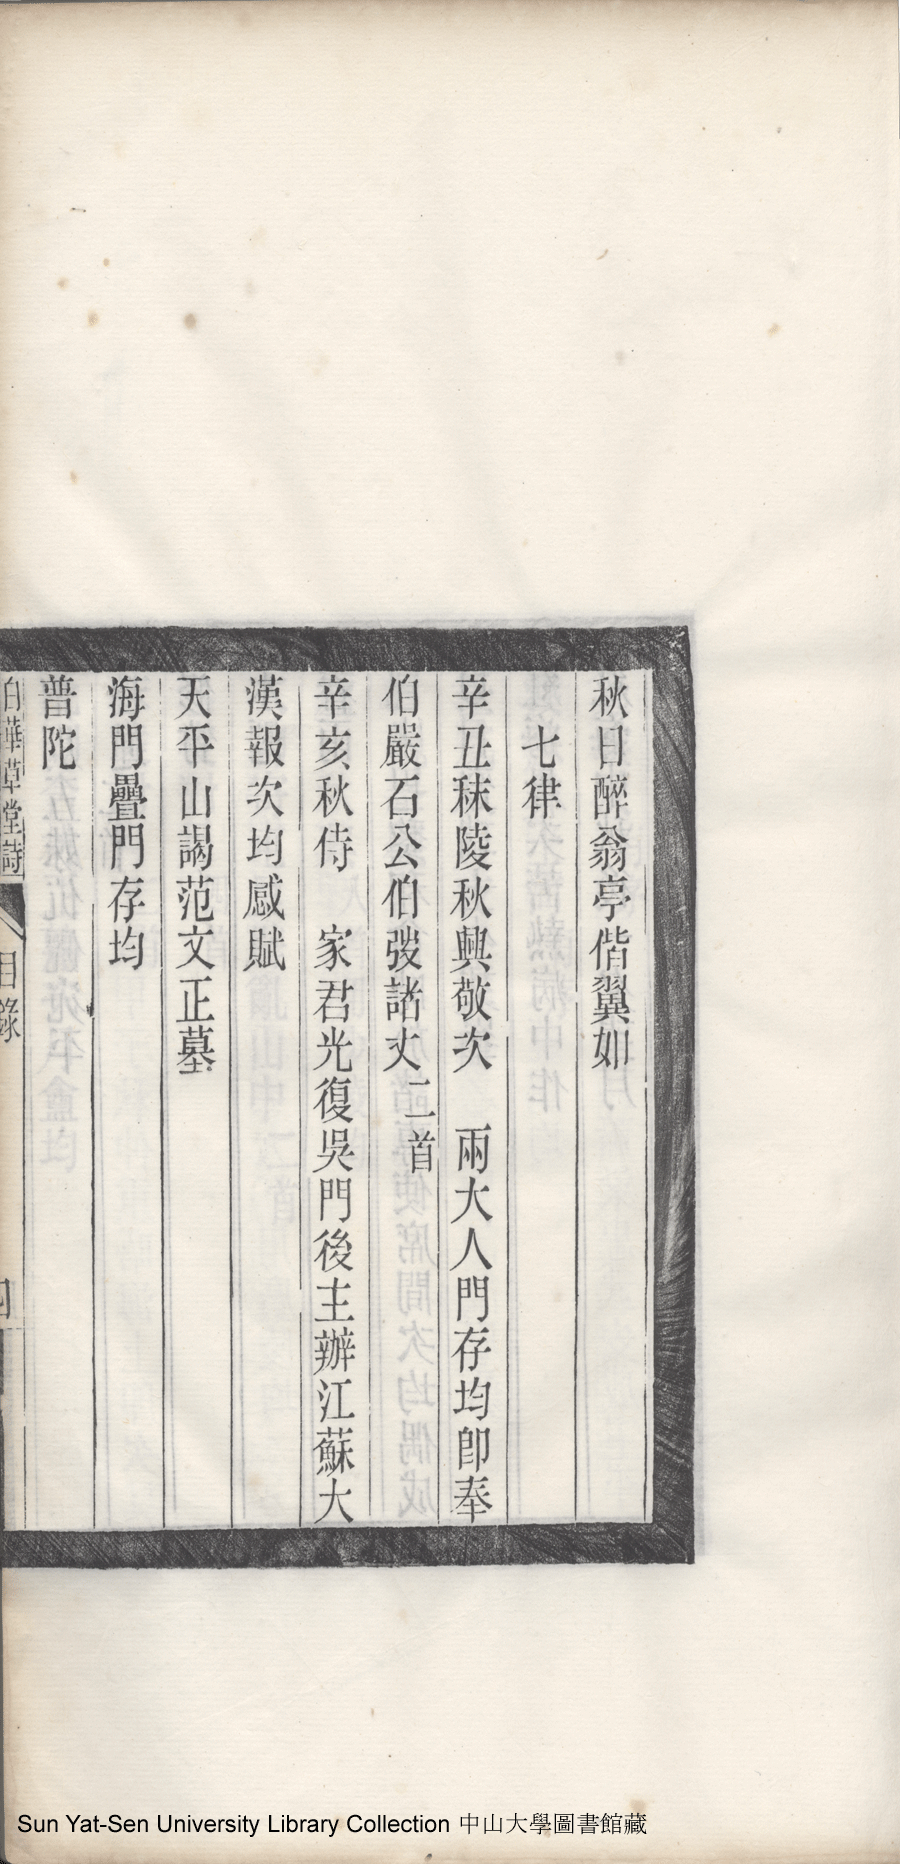 秋日醉翁亭偕翼如
七律
辛丑秣陵秋興敬次　兩大人門存均卽奉
伯嚴石公伯弢諸丈二首
辛亥秋侍　家君光復吳門後主辦江蘇大
漢報次均感賦
天平山謁范文正墓
海門疊門存均
普陀
白華草堂詩　目錄　四
Sun Yat-Sen University Library Collection 中山大學圖書館藏